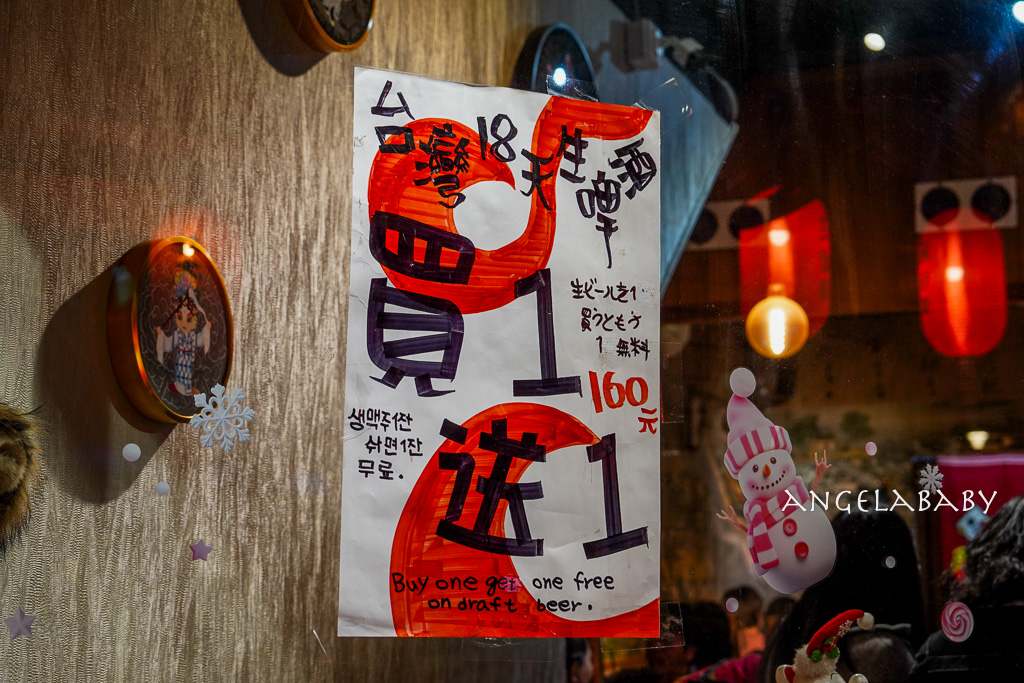 台灣18天生啤酒
買1
送1
生ビールを1
買うともう
1 無料
160元
생맥주1잔
사면1잔
무료.
Buy one get one free
on draft beer.
ANGELABABY